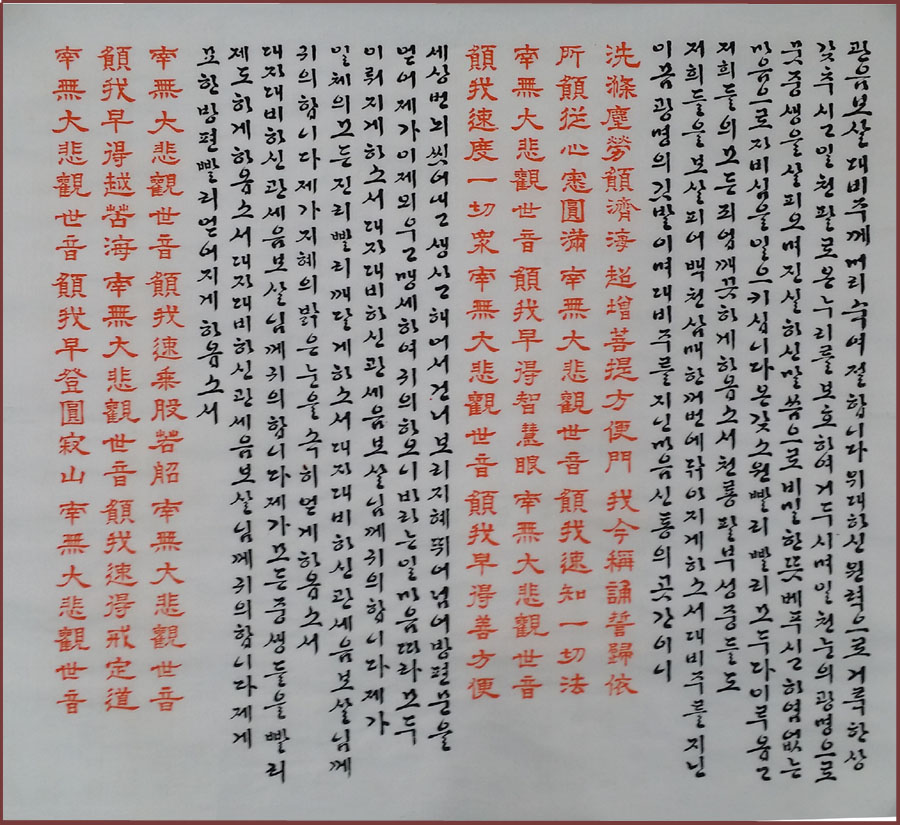 관음보살대비주께머리숙여절합니다위대하신원력으로거룩한상
갖추시고일천팔로온누리를보호하여거두시며일천눈의광명으로
뭇중생을살피오며진실하신말씀으로비밀한뜻베푸시고하염없는
마음으로자비심을일으키십니다온갖소원빨리빨리모두다이루옵고
저희들의모든죄업깨끗하게하옵소서천룡팔부성중들도
저희들을보살피어백천삼매한꺼번에닦아지게하소서대비주를지닌
이몸광명의깃발이며대비주를지닌마음신통의곳간이니
洗滌塵勞願濟海 超增菩提方便門 我今稱誦誓歸依
所願從心悉圓滿 南無大悲觀世音 願我速知一切法
南無大悲觀世音 願我早得智慧眼 南無大悲觀世音
願我速度一切衆 南無大悲觀世音 願我早得善方便
세상번뇌씻어내고생사고해어서건너보리지혜뛰어넘어방편문을
얻어제가이제외우고맹세하여귀의하오니바라는일마음따라모두
이뤄지게하소서대자대비하신관세음보살님께귀의합니다제가
일체의모든진리빨리깨달게하소서대자대비하신관세음보살님께
귀의합니다제가지혜의밝은눈을속히얻게하옵소서
대자대비하신관세음보살님께귀의합니다제가모든중생들을빨리
제도하게하옵소서대자대비하신관세음보살님께귀의합니다제게
묘한방편빨리얻어지게하옵소서
南無大悲觀世音 願我速乘般若船 南無大悲觀世音
願我早得越苦海 南無大悲觀世音 願我速得戒定道
南無大悲觀世音 願我早登圓寂山 南無大悲觀世音